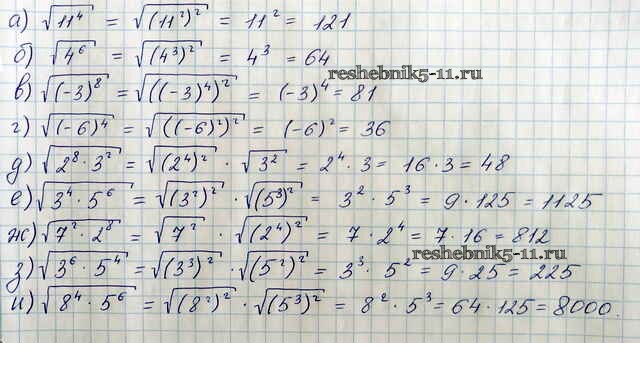 а) √11⁴ = √(11²)² = 11² = 121
б) √4⁶ = √(4³)² = 4³ = 64
reshebnik5-11.ru
в) √(-3)⁸ = √((-3)⁴)² = (-3)⁴ = 81
г) √(-6)⁴ = √((-6)²)² = (-6)² = 36
д) √2⁸·3² = √(2⁴)² · √3² = 2⁴·3 = 16·3 = 48
е) √3⁴·5⁶ = √(3²)² · √(5³)² = 3²·5³ = 9·125 = 1125
ж) √7²·2⁸ = √7² · √(2⁴)² = 7·2⁴ = 7·16 = 812
reshebnik5-11.ru
з) √3⁶·5⁴ = √(3³)² · √(5²)² = 3³·5² = 9·25 = 225
и) √8⁴·5⁶ = √(8²)² · √(5³)² = 8²·5³ = 64·125 = 8000.